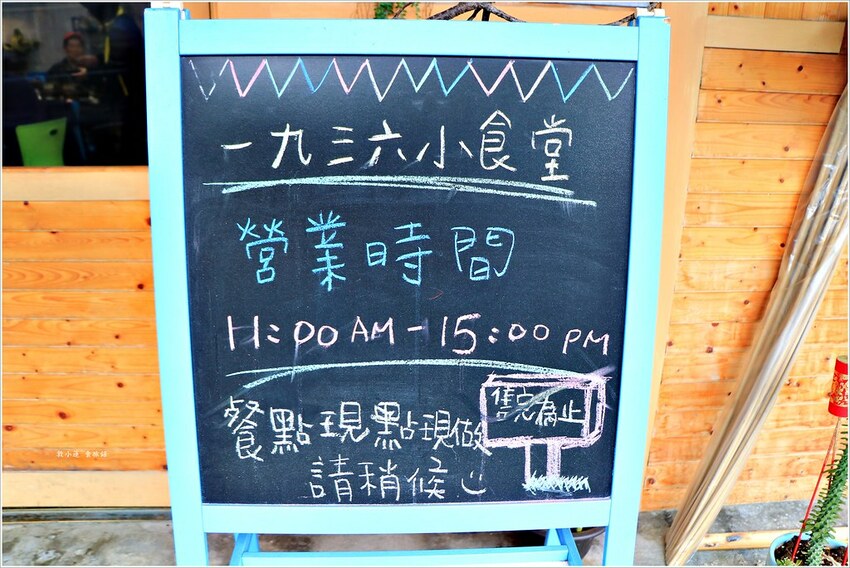 一九三六小食堂
營業時間
11:00 AM - 15:00 PM
售完為止
餐點現點現做
請稍候